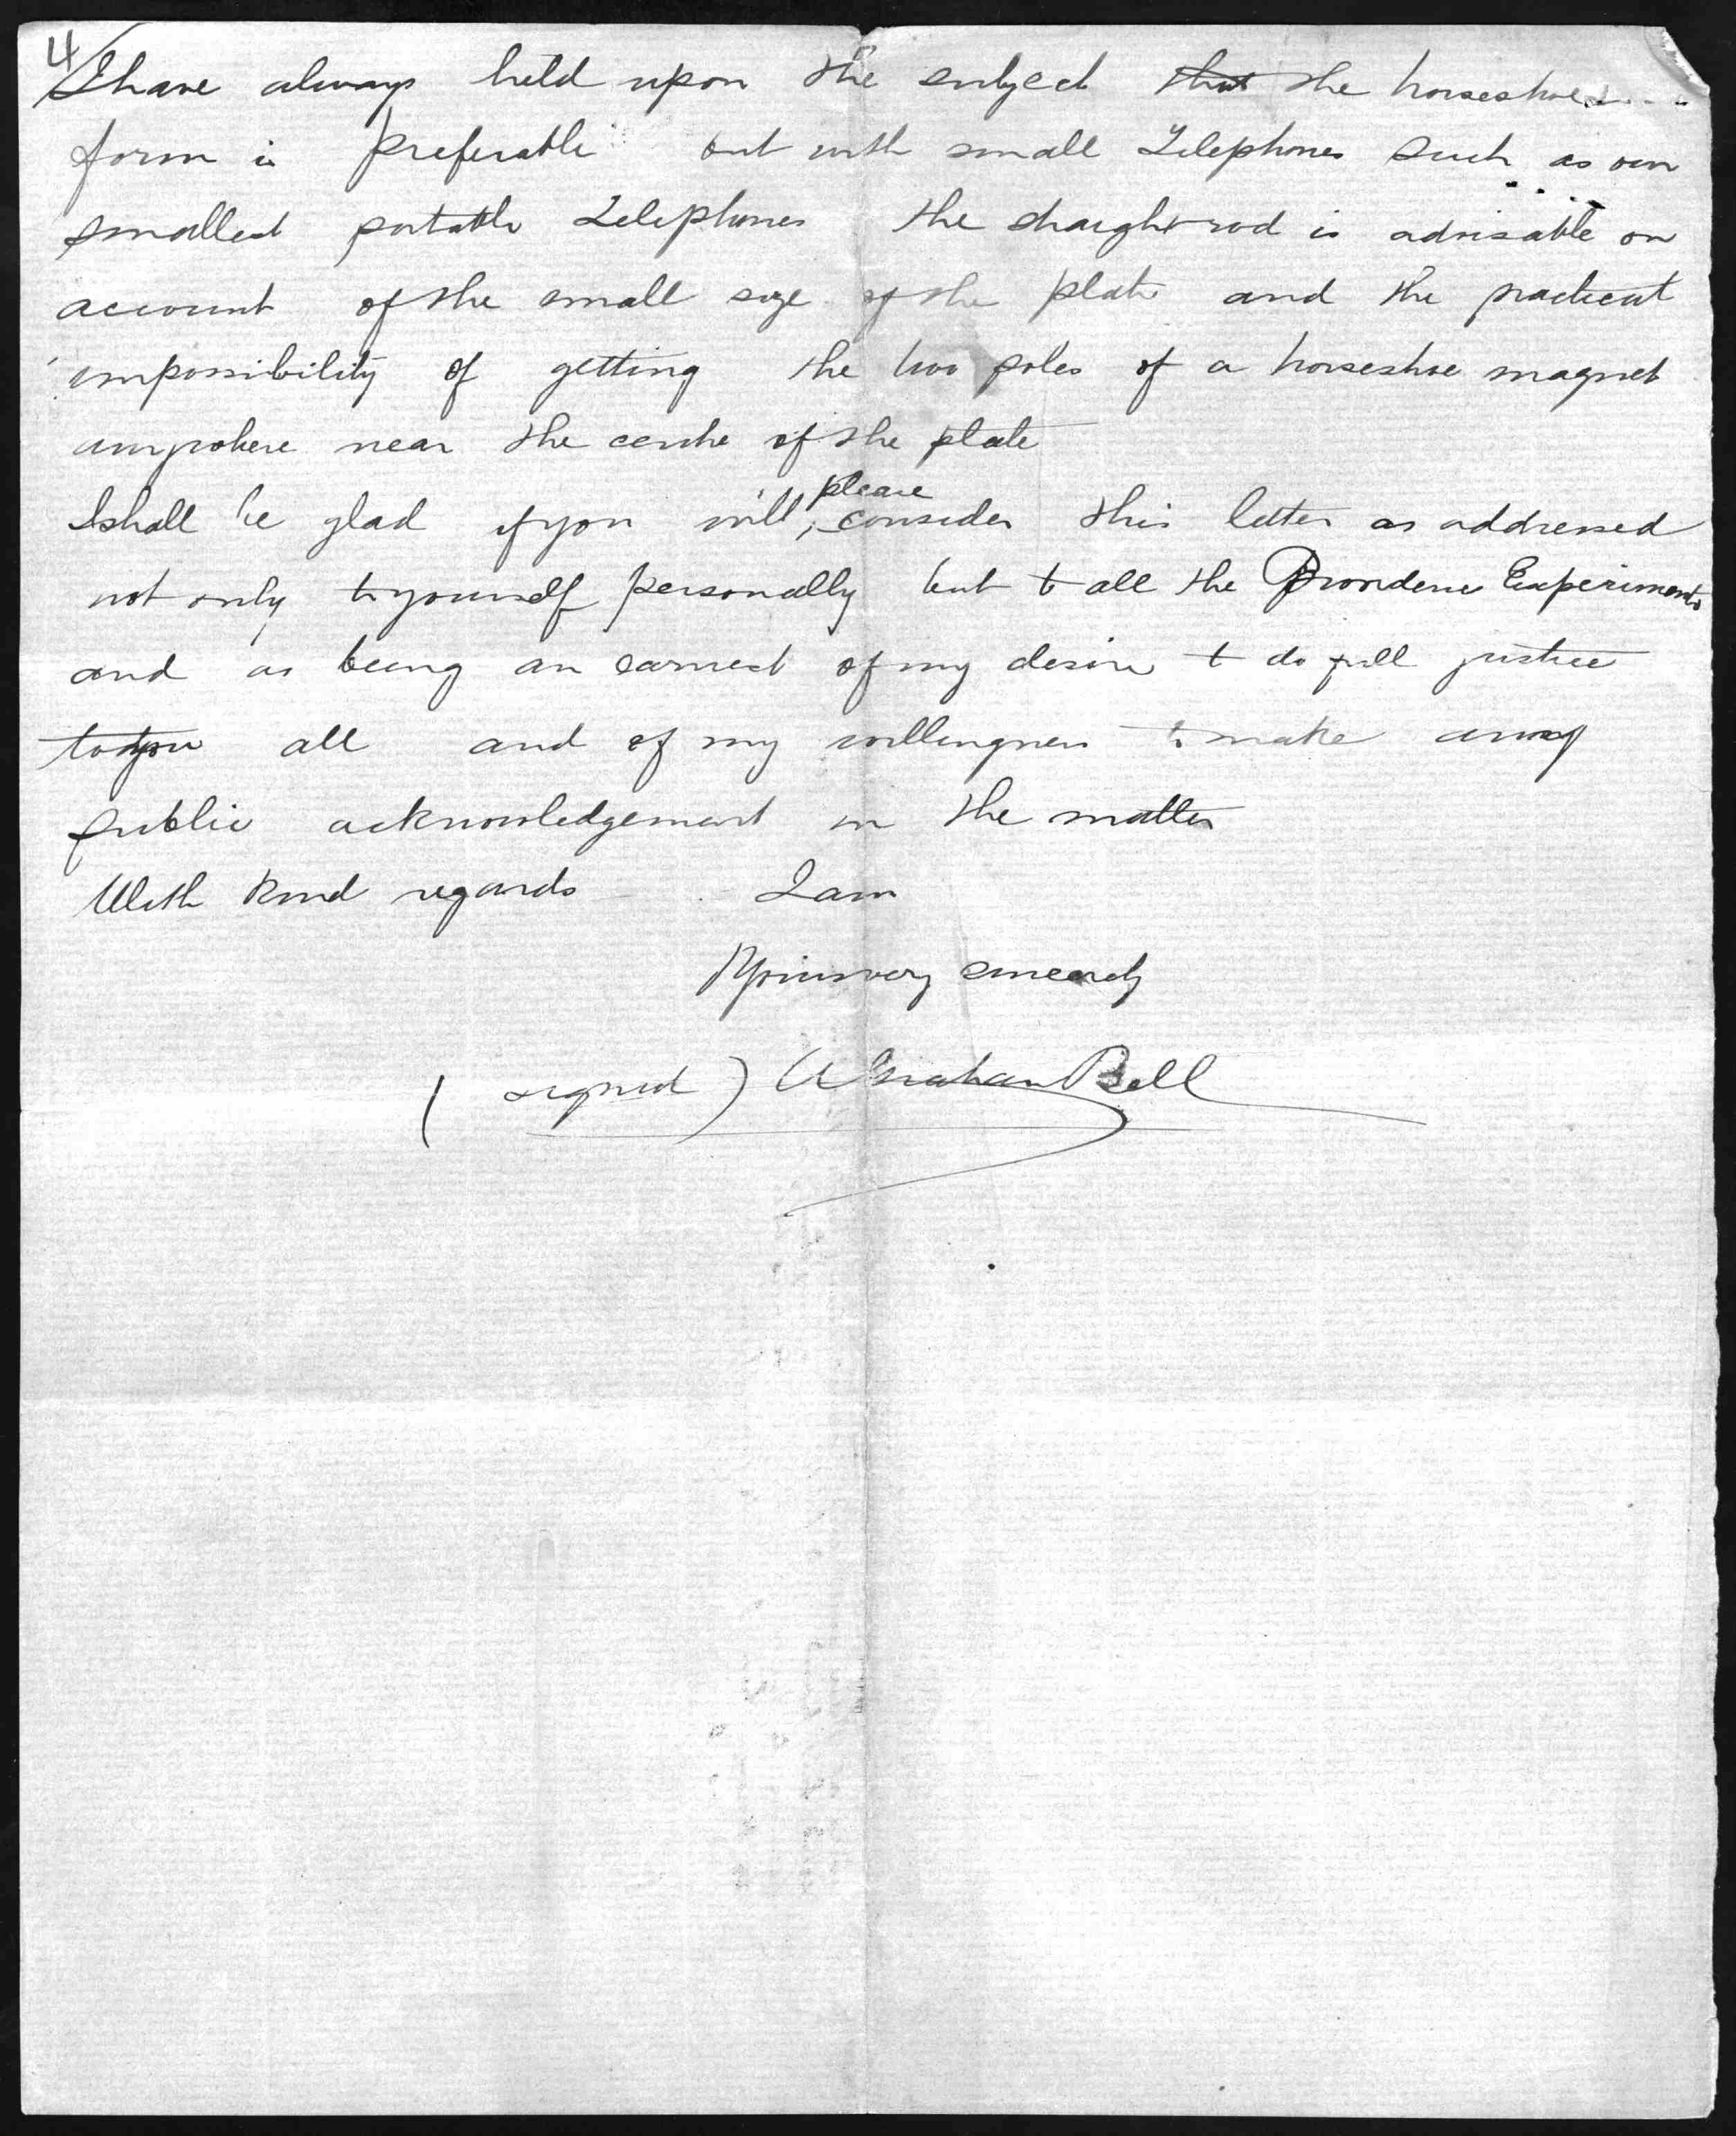 4
I have always held upon the subject that the horseshoe
form is preferable but with small Telephones such as our
smallest portable Telephones the straight rod is advisable on
account of the small size of the plate and the practical
impossibility of getting the two poles of a horseshoe magnet
anywhere near the centre of the plate
I shall be glad if you will, please consider this letter as addressed
not only to yourself personally but to all the Providence Experiments
and as being an earnest of my desire to do full justice
to you all and of my willingness to make any
public acknowledgement in the matter
With kind regards I am
Yours very sincerely
(signed) A Graham Bell